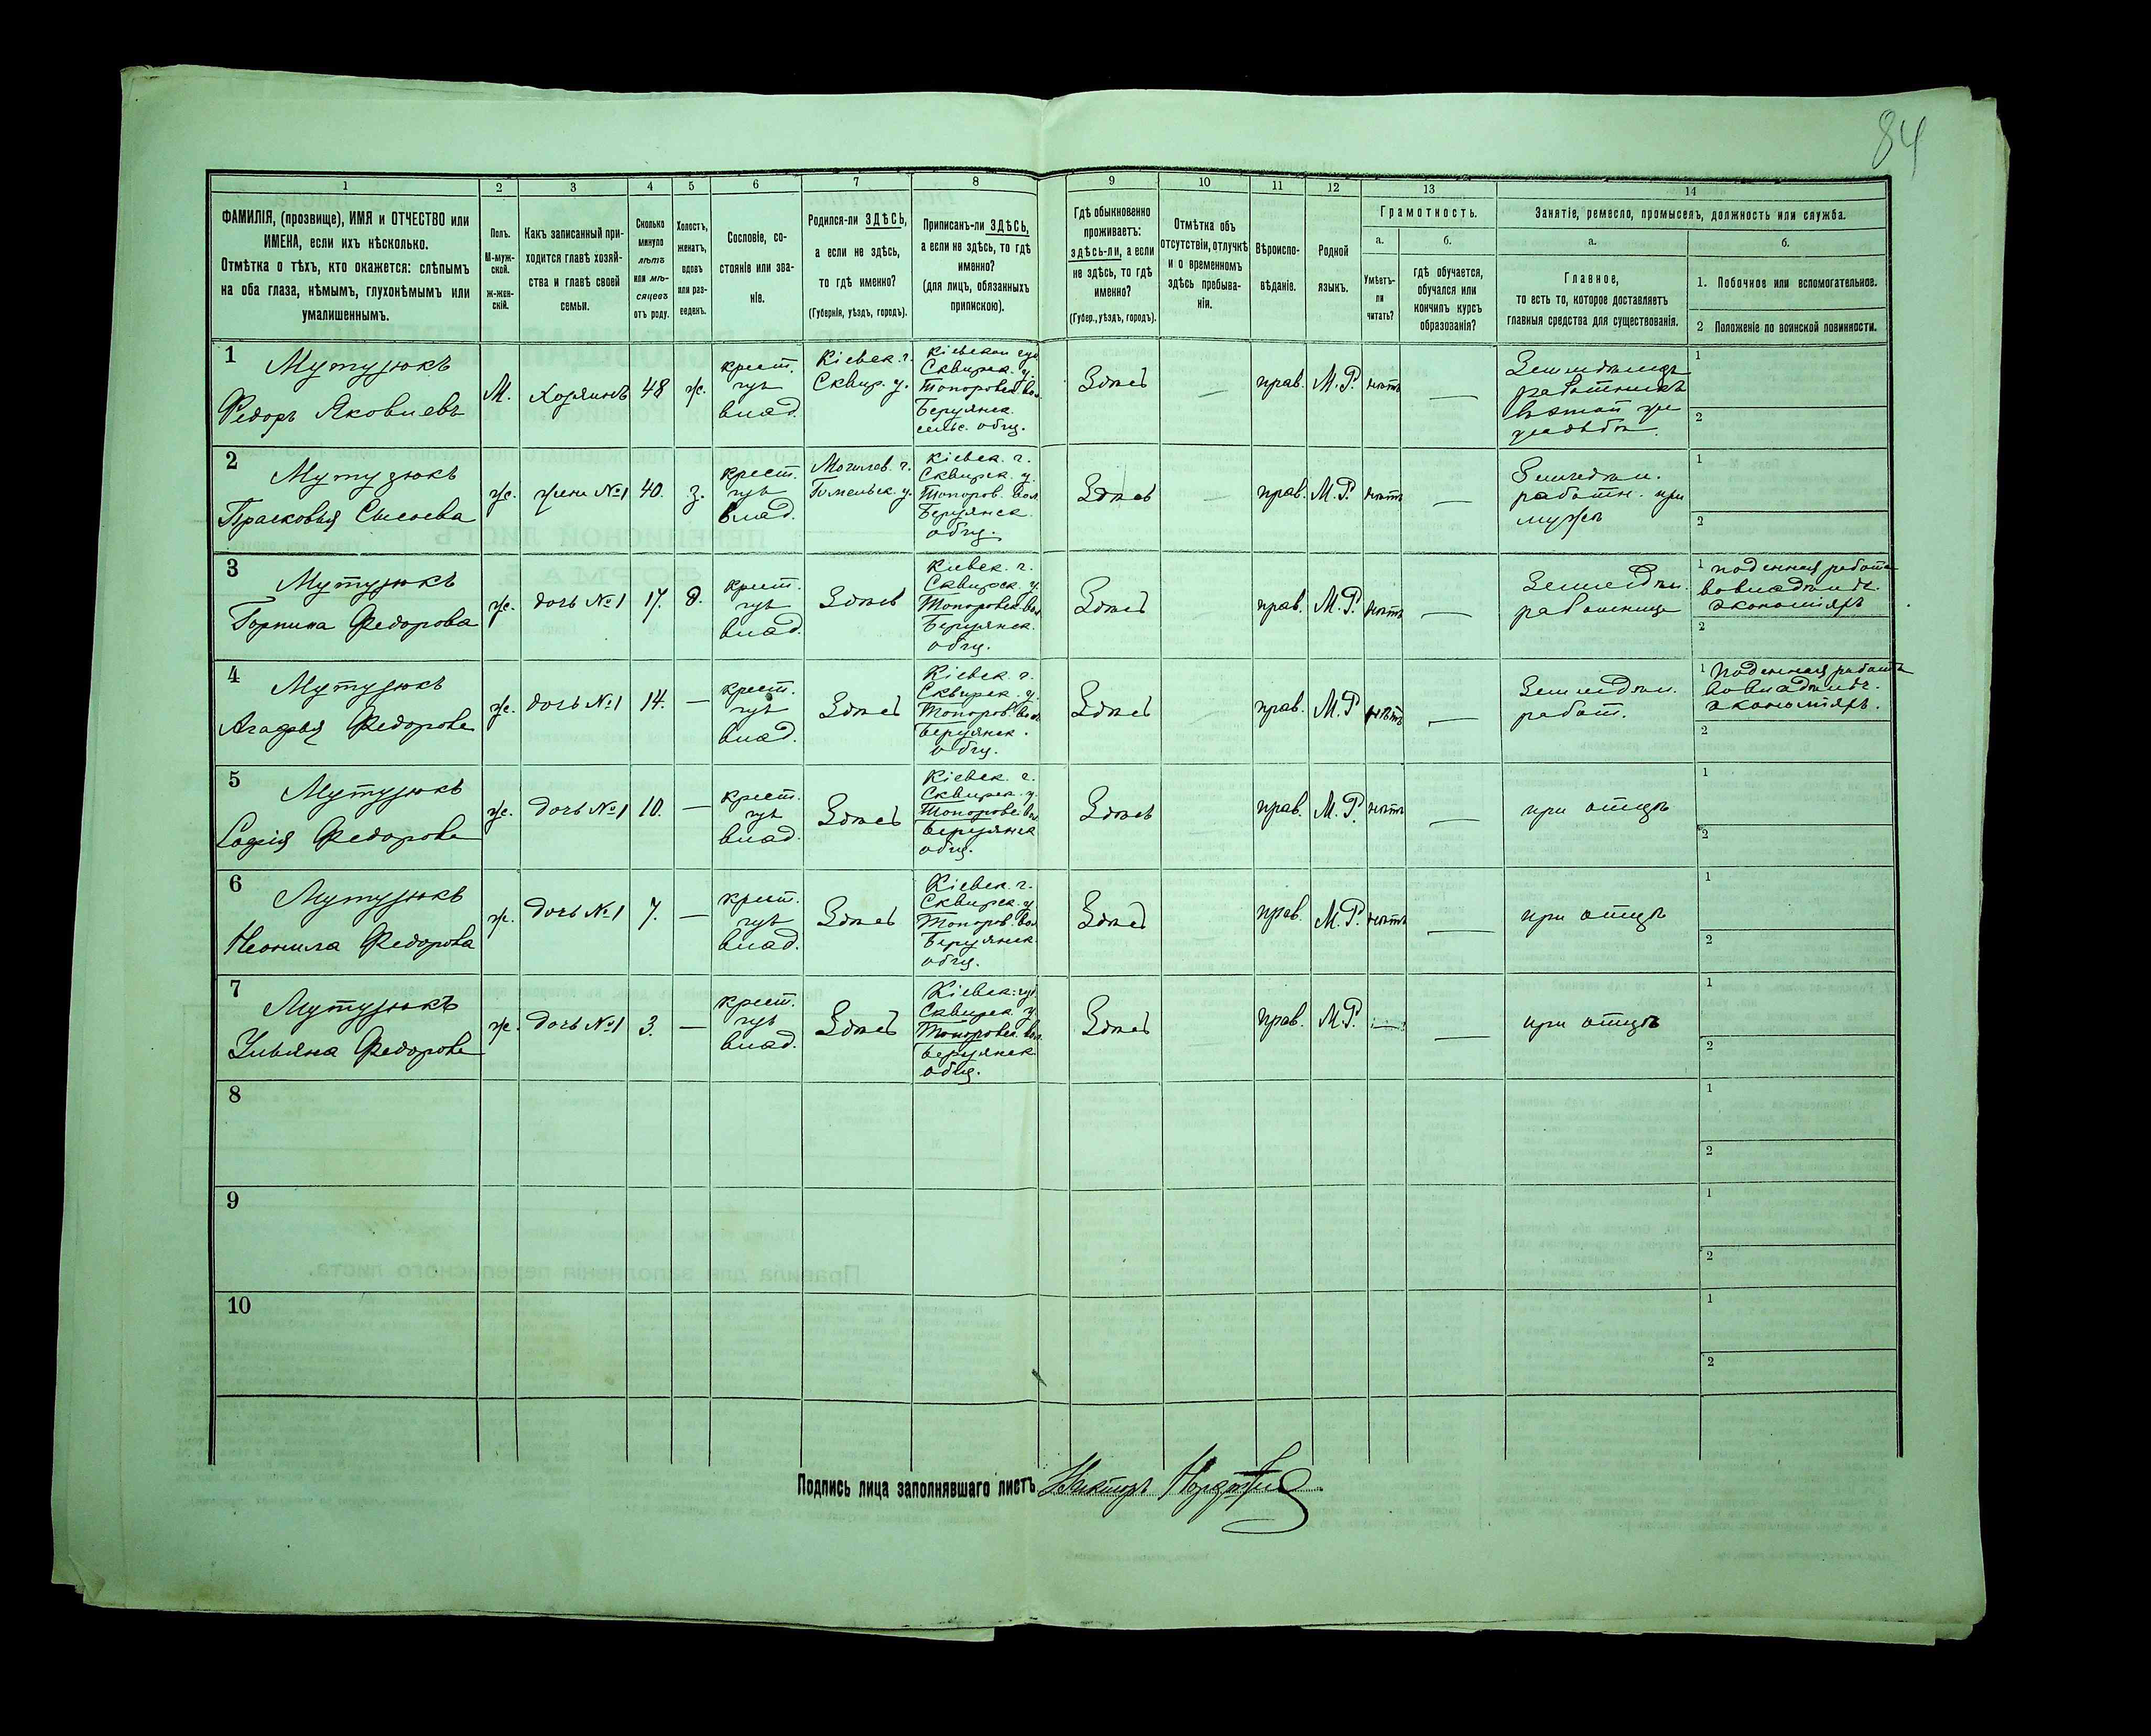 84
1 2 3 4 5 6 7 8 9 10 11 12 13 14
ФАМИЛІЯ, (прозвище), ИМЯ и ОТЧЕСТВО или
ИМЕНА, если ихъ нѣсколько.
Отмѣтка о тѣхъ, кто окажется: слѣпымъ
на оба глаза, нѣмымъ, глухонѣмымъ или
умалишеннымъ.
Полъ.
М-муж-
ской.
ж-жен-
скій.
Какъ записанный при-
ходится главѣ хозяй-
ства и главѣ своей
семьи.
Сколько
минуло
лѣтъ
или мѣ-
сяцевъ
отъ роду.
Холостъ,
женатъ,
вдовъ
или раз-
веденъ.
Сословіе, со-
стояніе или зва-
ніе.
Родился-ли ЗДѢСЬ,
а если не здѣсь,
то гдѣ именно?
(Губернія, уѣздъ, городъ).
Приписанъ-ли ЗДѢСЬ,
а если не здѣсь, то гдѣ
именно?
(для лицъ, обязанныхъ
припискою).
Гдѣ обыкновенно
проживаетъ:
здѣсь-ли, а если
не здѣсь, то гдѣ
именно?
(Губер., уѣздъ, городъ).
Отмѣтка объ
отсутствіи, отлучкѣ
и о временномъ
здѣсь пребыва-
ніи.
Вѣроиспо-
вѣданіе.
Родной
языкъ.
Грамотность.
а.
Умѣетъ-
ли
читать?
б.
гдѣ обучается,
обучался или
кончилъ курсъ
образованія?
Занятіе, ремесло, промыселъ, должность или служба.
а.
Главное,
то есть то, которое доставляетъ
главныя средства для существованія.
б.
1. Побочное или вспомогательное.
2 Положеніе по воинской повинности.
1
Мутузюкъ
Федоръ Яковлевъ
М.
хозяинъ
48
ж.
крест.
изъ
влад.
Кіевск. г.
Сквир. у.
Кіевской губ
Сквирск. у.
Топоровск. вол.
Берузянск.
сельс. общ.
Здѣсь
—
прав.
М. Р.
нѣтъ
—
Земледѣлецъ
1
2
2
Мутузюкъ
Прасковья Сысоева
ж.
жена №1
40.
з.
крест.
изъ
влад.
Могилев. г.
Гомельск. у.
Кіевск. г.
Сквирск. у.
Топоров. вол.
Берузянск.
общ.
Здѣсь
—
прав.
М. Р.
нѣтъ
—
Земледѣл.
работн. при
мужѣ
1
2
3
Мутузюкъ
Горпина Федорова
ж.
дочь №1
17.
д.
крест.
изъ
влад.
Здѣсь
Кіевск. г.
Сквирск. у.
Топоровск. вол.
Берузянск.
общ.
Здѣсь
прав.
М. Р.
нѣтъ
—
Земледѣл.
работница
1 поденная работа
во владѣльч.
экономіяхъ
2
4
Мутузюкъ
Агафья Федорова
ж.
дочь №1
14.
—
крест.
изъ
влад.
Здѣсь
Кіевск. г.
Сквирск. у.
Топоров. вол.
Берузянск.
общ.
Здѣсь
прав.
М. Р.
нѣтъ
—
Земледѣл.
работ.
1 Поденная работа
во владѣльч.
экономіяхъ.
2
5
Мутузюкъ
Софія Федорова
ж.
дочь №1
10.
—
крест.
изъ
влад.
Здѣсь
Кіевск. г.
Сквирск. у.
Топоровс. вол
Берузянск
общ.
Здѣсь
прав.
М. Р.
нѣтъ
—
при отцѣ
1
2
6
Мутузюкъ
Неонила Федорова
ж.
дочь №1
7.
—
крест.
изъ
влад.
Здѣсь
Кіевск. г.
Сквирск. у.
Топоров. вол
Берузянск.
общ.
Здѣсь
прав.
М. Р.
нѣтъ
—
при отцѣ
1
2
7
Мутузюкъ
Ульяна Федорова
ж.
дочь №1
3.
—
крест.
изъ
влад.
Здѣсь
Кіевск. губ.
Сквирск. у.
Топоровск. вол.
Берузянск.
общ.
Здѣсь
прав.
М. Р.
—
—
при отцѣ
1
2
8
1
2
9
1
2
10
1
2
Подпись лица заполнявшаго листъ